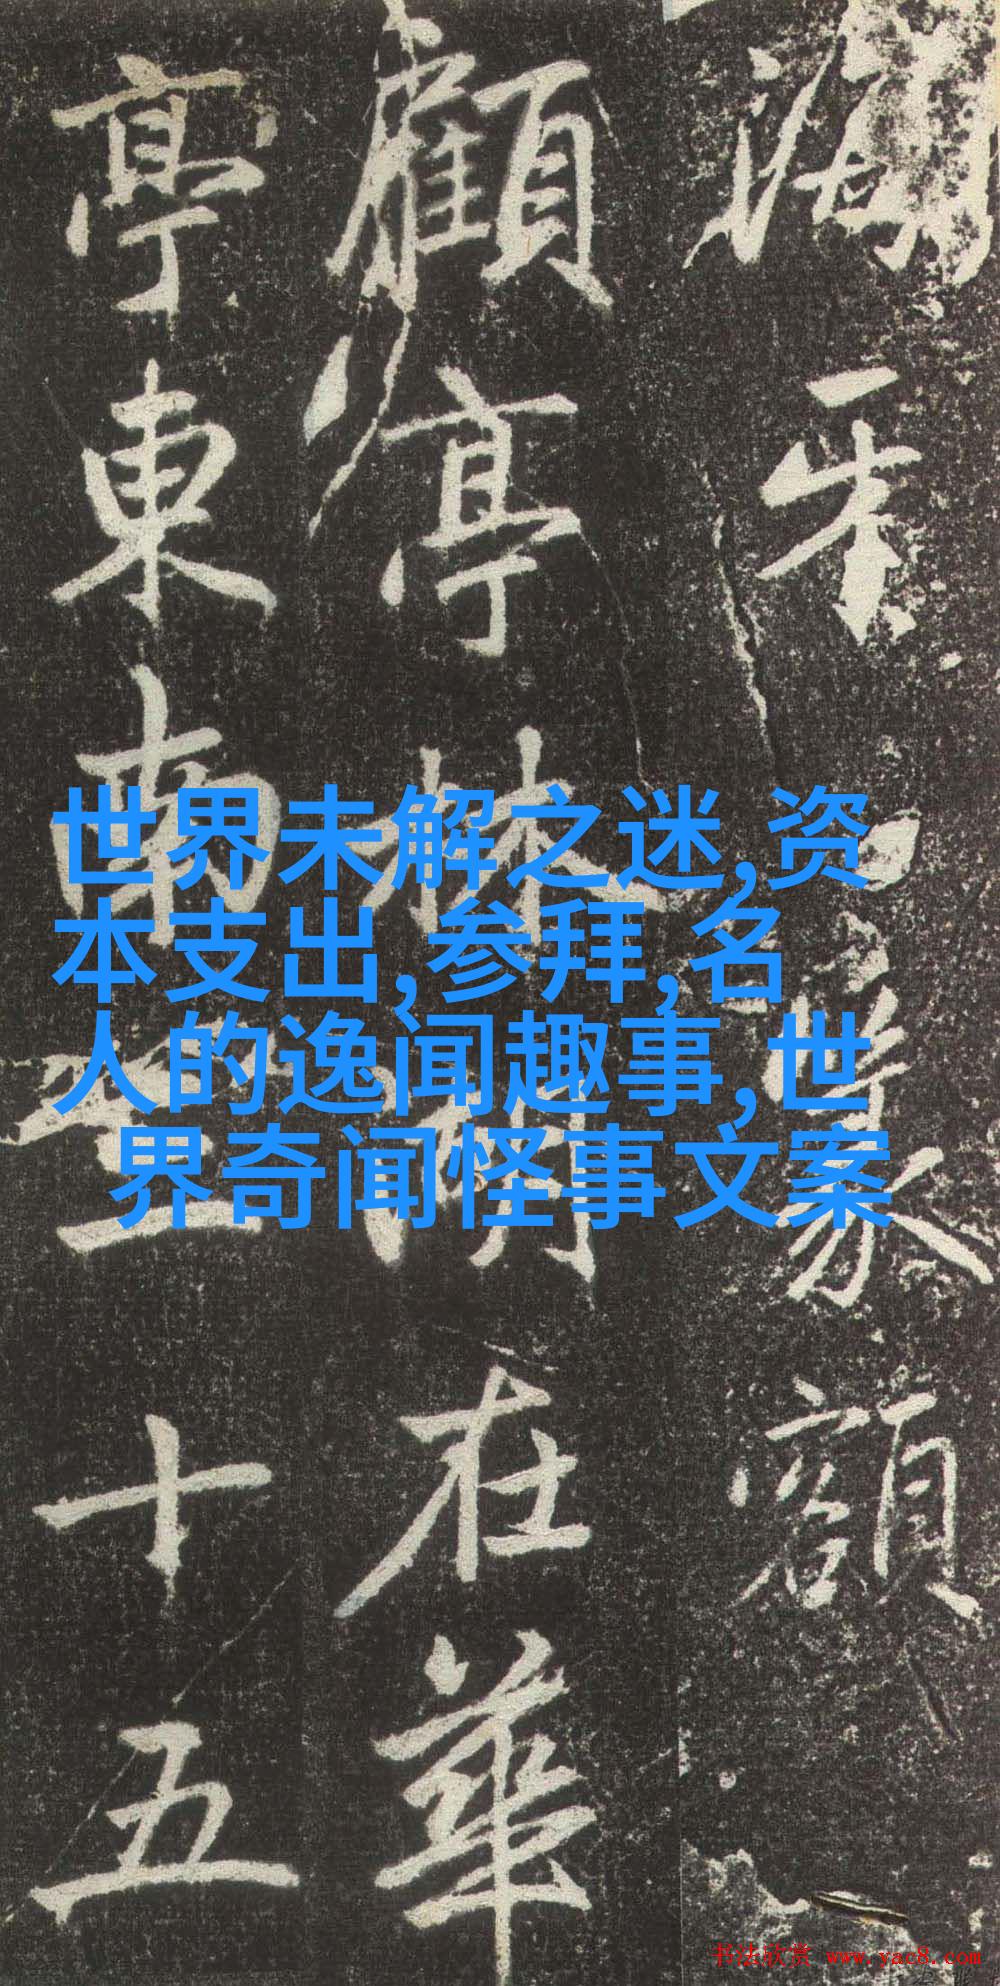 篆額
顧亭林湖在華
亭東南三十五
世界未解之迷,资
本支出,参拜,名
人的逸闻趣事,世
界奇闻怪事文案
书法欣赏 www.yac8.com